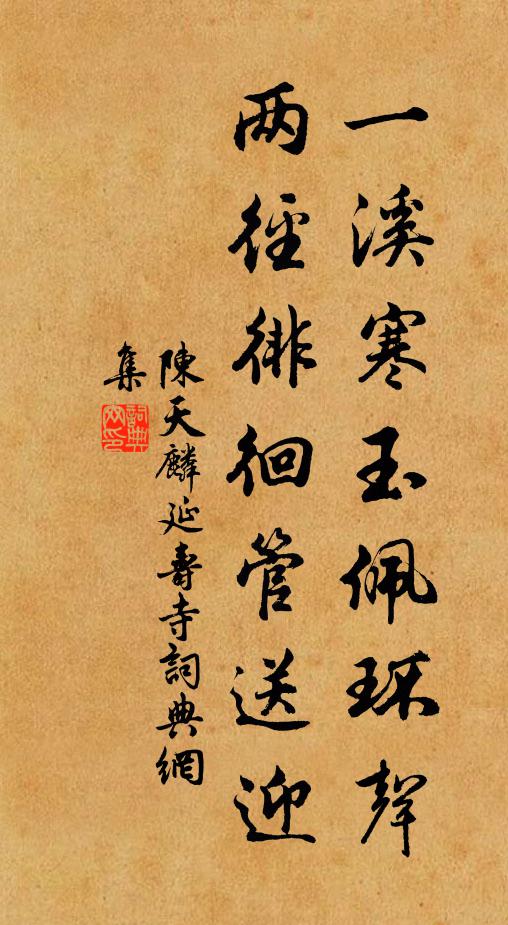 一溪寒玉佩环聲
两徑徘徊管送迎
陳天麟延壽寺詞典網
集
詞典網印